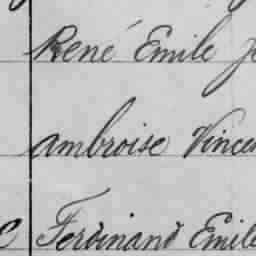 René Emile
ambroise Vincen
Ferdinand Emile